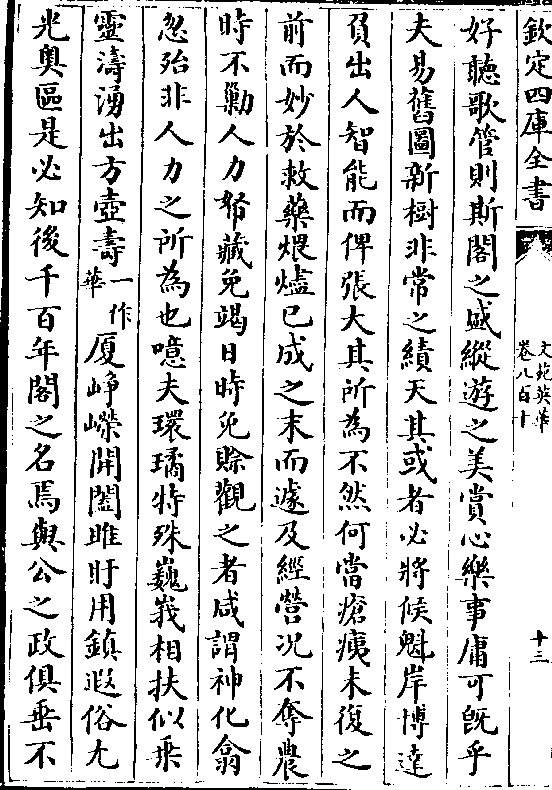 欽定四庫全書
文苑英華
卷八百十
十三
好聽歌管則斯閣之盛縱遊之美賞心樂事庸可旣乎
夫易舊圖新樹非常之績天其或者必將候魁岸博達
負出人智能而俾張大其所為不然何當瘡痍未復之
前而妙於救藥煨爐已成之末而遽及經營况不奪農
時不勦人力帑藏免竭日時免賒觀之者咸謂神化翕
忽殆非人力之所為也噫夫環璚特殊巍峩相扶似乗
靈濤湧出方壺壽一作華厦崢嶸開闔雎盱用鎮遐俗尤
光奥區是必知後千百年閣之名焉與公之政俱垂不